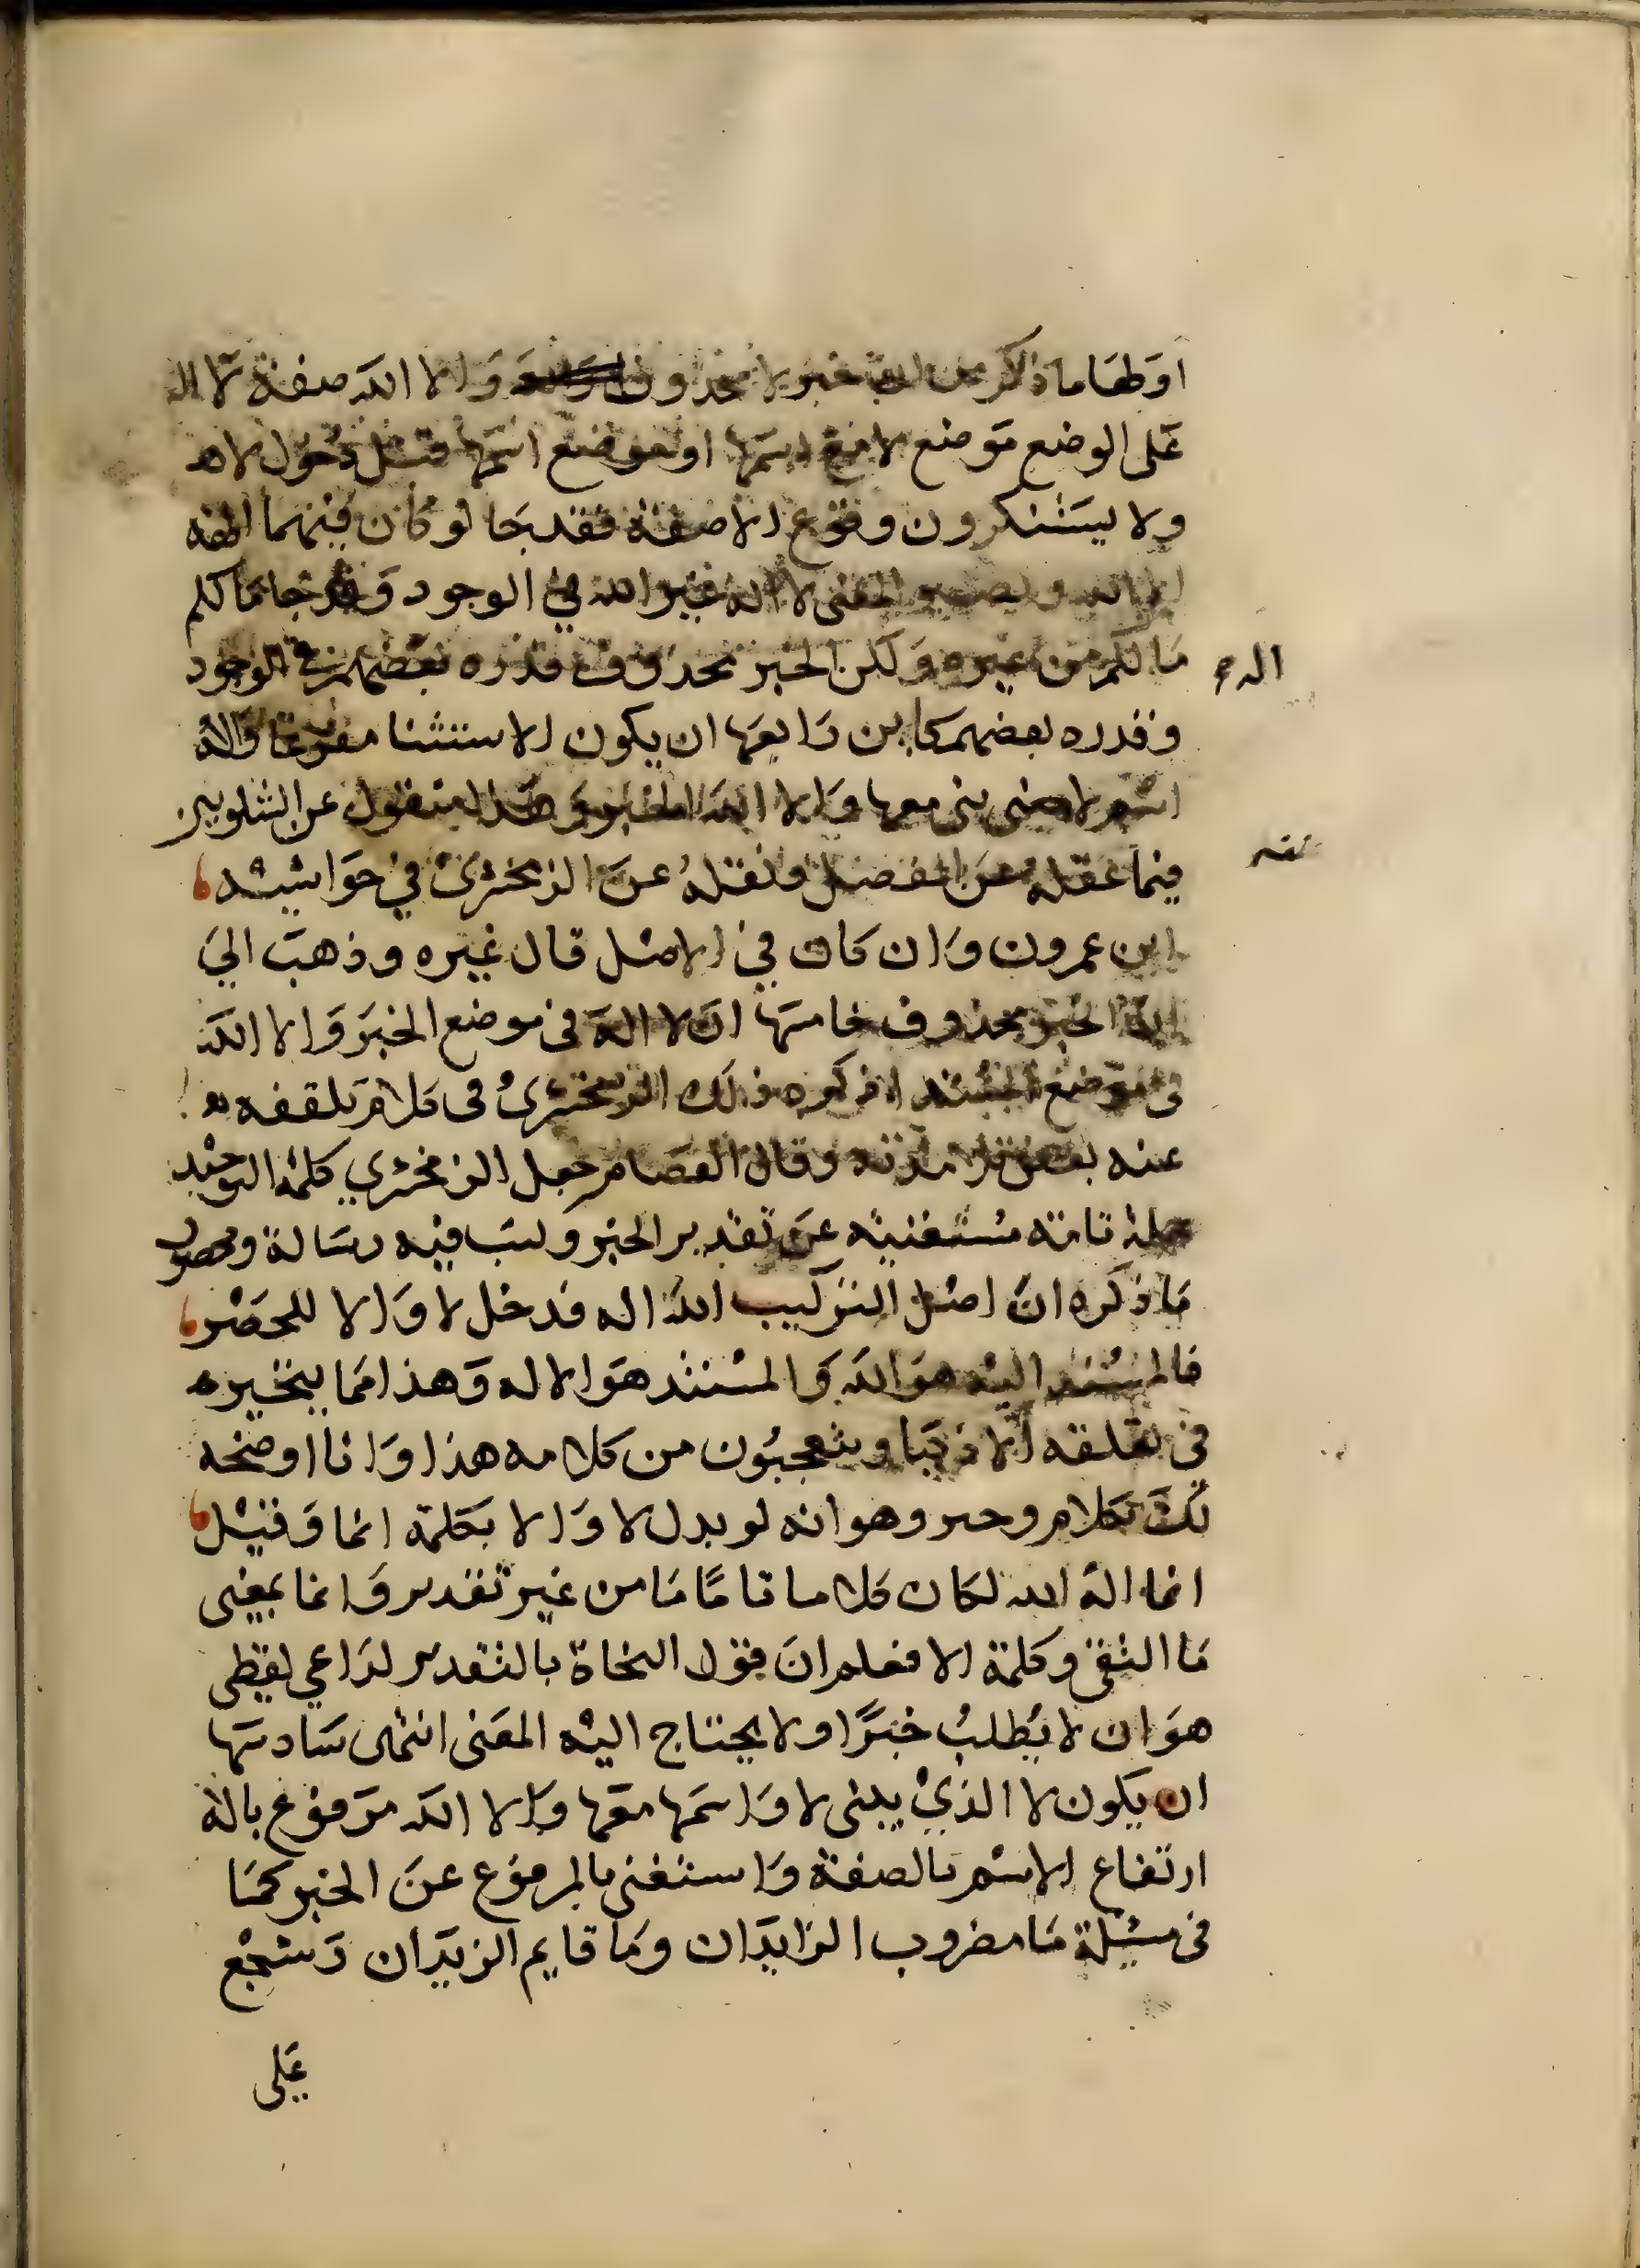 ما ذكر من خبر لا محذوف والا الله صفة لا اله
على الوضع موضع لا مع اسمها او موضع اسمها قبل دخول لا
ولا يستنكرون وقوع الا صفة فقد جا لو كان فيهما الهة
الا الله المعنى لا اله غير الله في الوجود جا ما لكم
ما لكم من غيره ولكن الخبر محذوف قدره بعضهم في الوجود
اله
وقدره بعضهم كاين رابعها ان يكون الاستثنا مفرغا واله
اسم لا بنى معها والا الله الخبر وهذا منقول عن الشلوبين
فيما عن المفصل ونقله عن الزمخشرى في حواشيه
ابن عمرون وان كان في الاصل قال غيره وذهب الى
ان الخبر محذوف خامسها ان لا اله فى موضع الخبر والا الله
فى موضع المبتدا ذكره ذلك الزمخشرى فى كلام تلقفه
عنه بعض تلامذته وقال العصام جعل الزمخشري كلمة التوحيد
جملة تامة مستغنية عن تقدير الخبر وكتب فيه رسالة ومحصول
ما ذكره ان اصل التركيب الله اله فدخل لا والا للحصر
فالمسند اليه هو الله والمسند هو الاله وهذا مما يتحير
فى الاذكيا ويتعجبون من كلامه هذا وانا اوضحه
لك بكلام وهو انه لو بدل لا والا بكلمة انما وقيل
انما اله الله لكان كلاما تاما من غير تقدير وانما بمعنى
ما النفى وكلمة الا فعلم ان قول النحاة بالتقدير لداعي لفظى
هو ان لا يطلب خبرا ولا يحتاج اليه المعنى انتهى سادسها
ان يكون لا الذي يبنى لا واسمها معها والا الله مرفوع باله
ارتفاع الاسم بالصفة واستغنى بالمرفوع عن الخبر كما
فى مسئلة ما مضروب الزايدان وما قايم الزيدان
على